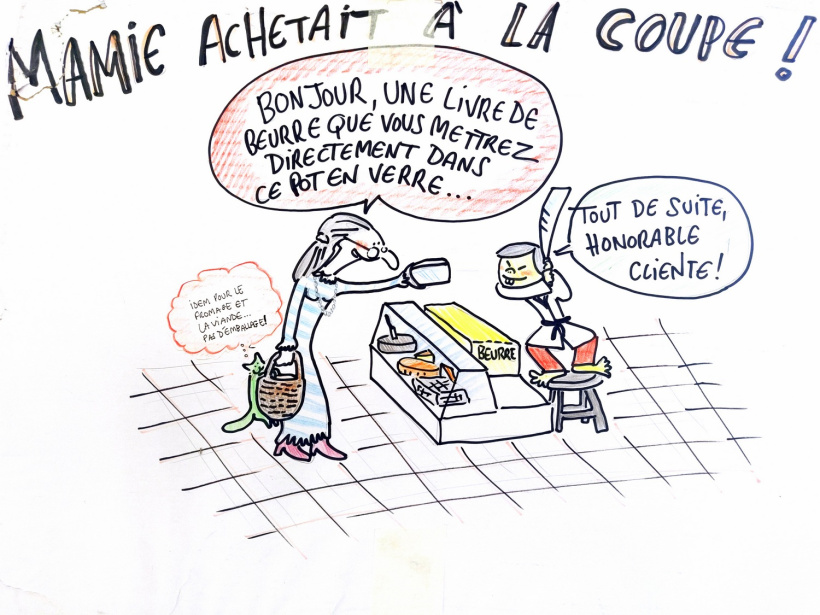 MAMIE ACHETAIT À LA COUPE !
BONJOUR, UNE LIVRE DE
BEURRE QUE VOUS METTREZ
DIRECTEMENT DANS
CE POT EN VERRE...
TOUT DE SUITE,
HONORABLE
CLIENTE !
IDEM POUR LE
FROMAGE ET
LA VIANDE...
PAS D'EMBALLAGE!
BEURRE